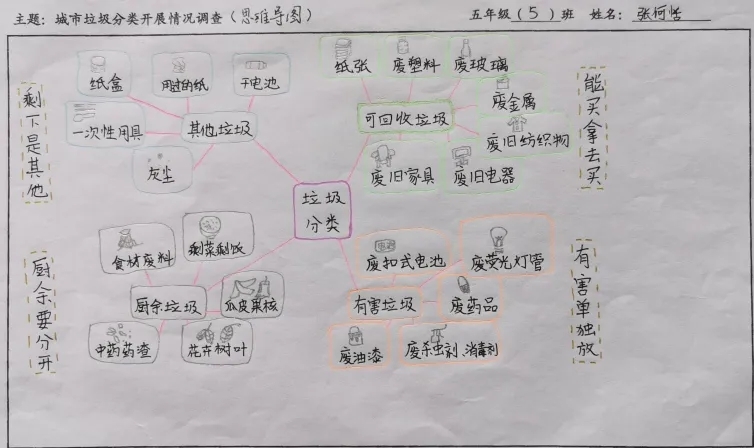 主题：城市垃圾分类开展情况调查（思维导图）
五年级（5）班 姓名：张何恬
剩下是其他
纸盒
用过的纸
干电池
一次性用具
其他垃圾
灰尘
纸张
废塑料
废玻璃
可回收垃圾
废金属
废旧纺织物
废旧家具
废旧电器
能买拿去买
垃圾
分类
厨余要分开
食材废料
剩菜剩饭
厨余垃圾
瓜皮果核
中药药渣
花卉树叶
废扣式电池
废荧光灯管
有害垃圾
废药品
废油漆
废杀虫剂、消毒剂
有害单独放